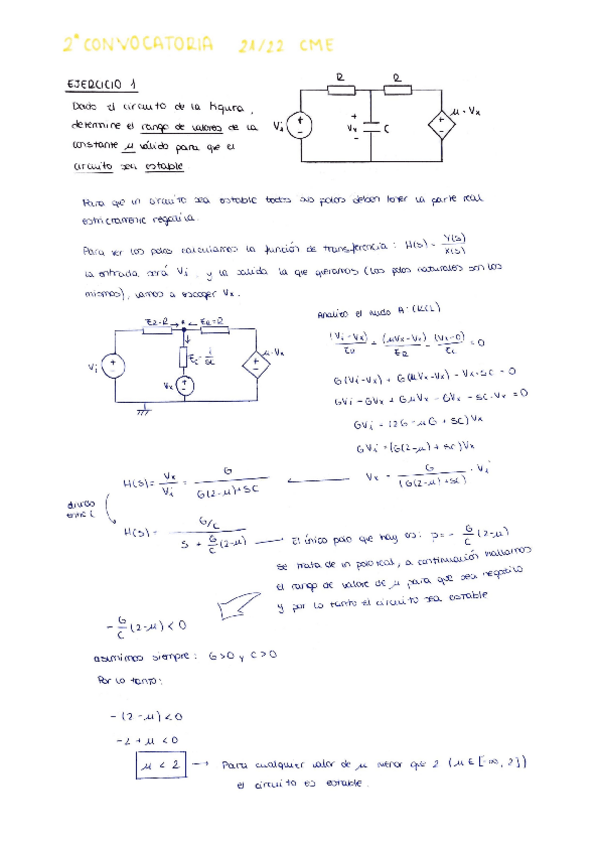 2ª CONVOCATORIA 21/22 CME
EJERCICIO 1
Dado el circuito de la figura,
determine el rango de valores de la
constante μ válido para que el
circuito sea estable.
R R
Vi + - + Vx - C + - μ·Vx
Para que un circuito sea estable todos sus polos deben tener la parte real
estrictamente negativa.
Para ver los polos calculamos la función de transferencia: H(s) = Y(s)/X(s)
la entrada será Vi, y la salida la que queramos (los polos naturales son los
mismos), vamos a escoger Vx.
Analizo el nudo A: (KCL)
(Vi-Vx)/ZR + (μVx-Vx)/ZR - (Vx-0)/ZC = 0
G(Vi-Vx) + G(μVx-Vx) - Vx·SC = 0
GVi - GVx + GμVx - GVx - SC·Vx = 0
GVi = (2G - μG + SC)Vx
GVi = (G(2-μ) + SC)Vx
Vx = G/(G(2-μ) + SC) · Vi
H(s) = Vx/Vi = G/(G(2-μ)+SC)
divido
entre C
H(s) = (G/C)/(S + G/C (2-μ))
El único polo que hay es: p = - G/C (2-μ)
se trata de un polo real, a continuación hallamos
el rango de valores de μ para que sea negativo
y por lo tanto el circuito sea estable
- G/C (2-μ) < 0
asumimos siempre: G>0 y C>0
Por lo tanto:
-(2-μ) < 0
-2 + μ < 0
μ < 2 → Para cualquier valor de μ menor que 2 (μ ∈ [-∞, 2})
el circuito es estable.